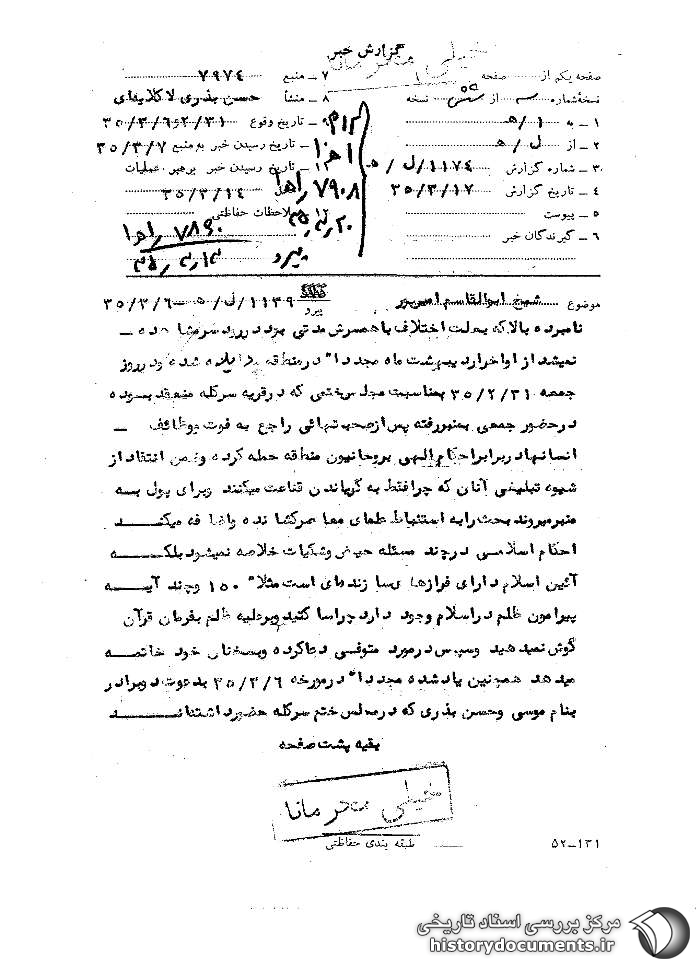 گزارش خبر
خیلی محرمانه
صفحه یکم از صفحه
نسخه شماره سه از شش نسخه
۱ ـ به ۱ /هـ
۲ ـ از ل /هـ
۳ ـ شماره گزارش ۱۱۷۴ /ل /هـ
۴ ـ تاریخ گزارش ۳۵/۳/۱۷
۵ ـ پیوست
۶ ـ گیرندگان خبر
۷ ـ منبع ۷۹۷۴
۸ ـ منشأ حسن بذری لاکلایه‌ای
تاریخ وقوع ۳۱/۲و۳۵/۳/۶
تاریخ رسیدن خبر به منبع ۳۵/۳/۷
تاریخ رسیدن خبر برهبر عملیات
۳۵/۳/۱۴
ملاحظات حفاظتی
۷۹۰۸
۷۸۹۰
موضوع شیخ ابوالقاسم
پیرو ۱۱۳۹ /ل /هـ ـ ۳۵/۳/۶
نامبرده بالا که بعلت اختلاف با همسرش مدتی بود در رودسر مشاهده ـ
نمیشد از اواخر اردیبهشت ماه مجددا" در منطقه شده و در روز
جمعه ۳۵/۲/۳۱ بمناسبت مجلس ختمی که در قریه سرکله منعقد بوده
در حضور جمعی بمنبر رفته پس از صحبتهائی راجع به فوت و وظائف ـ
انسانها در برابر احکام الهی بروحانیون منطقه حمله کرده و ضمن انتقاد از
شیوه تبلیغی آنان که چرا فقط به گریاندن قناعت میکنند و برای پول به
منبر میروند بحث را به استنباط های معاصر کشانده و اضافه میکند
احکام اسلامی در چند مسئله حیض و شکیات خلاصه نمیشود بلکه
آئین اسلام دارای فرازهای سازنده‌ای است مثلا" ۱۵۰ و چند آیه
پیرامون ظلم در اسلام وجود دارد چرا ساکتید و بر علیه ظلم بفرمان قرآن
گوش نمیدهید و سپس در مورد متوفی دعا کرده و بسخنان خود خاتمه
میدهد همچنین یاد شده مجددا" در مورخه ۳۵/۳/۶ بدعوت دو برادر
بنام موسی و حسن بذری که در مجلس ختم سرکله حضور داشتند
بقیه پشت صفحه
خیلی محرمانه
طبقه بندی حفاظتی
۱۳۱ـ۵۲
مرکز بررسی اسناد تاریخی
historydocuments.ir